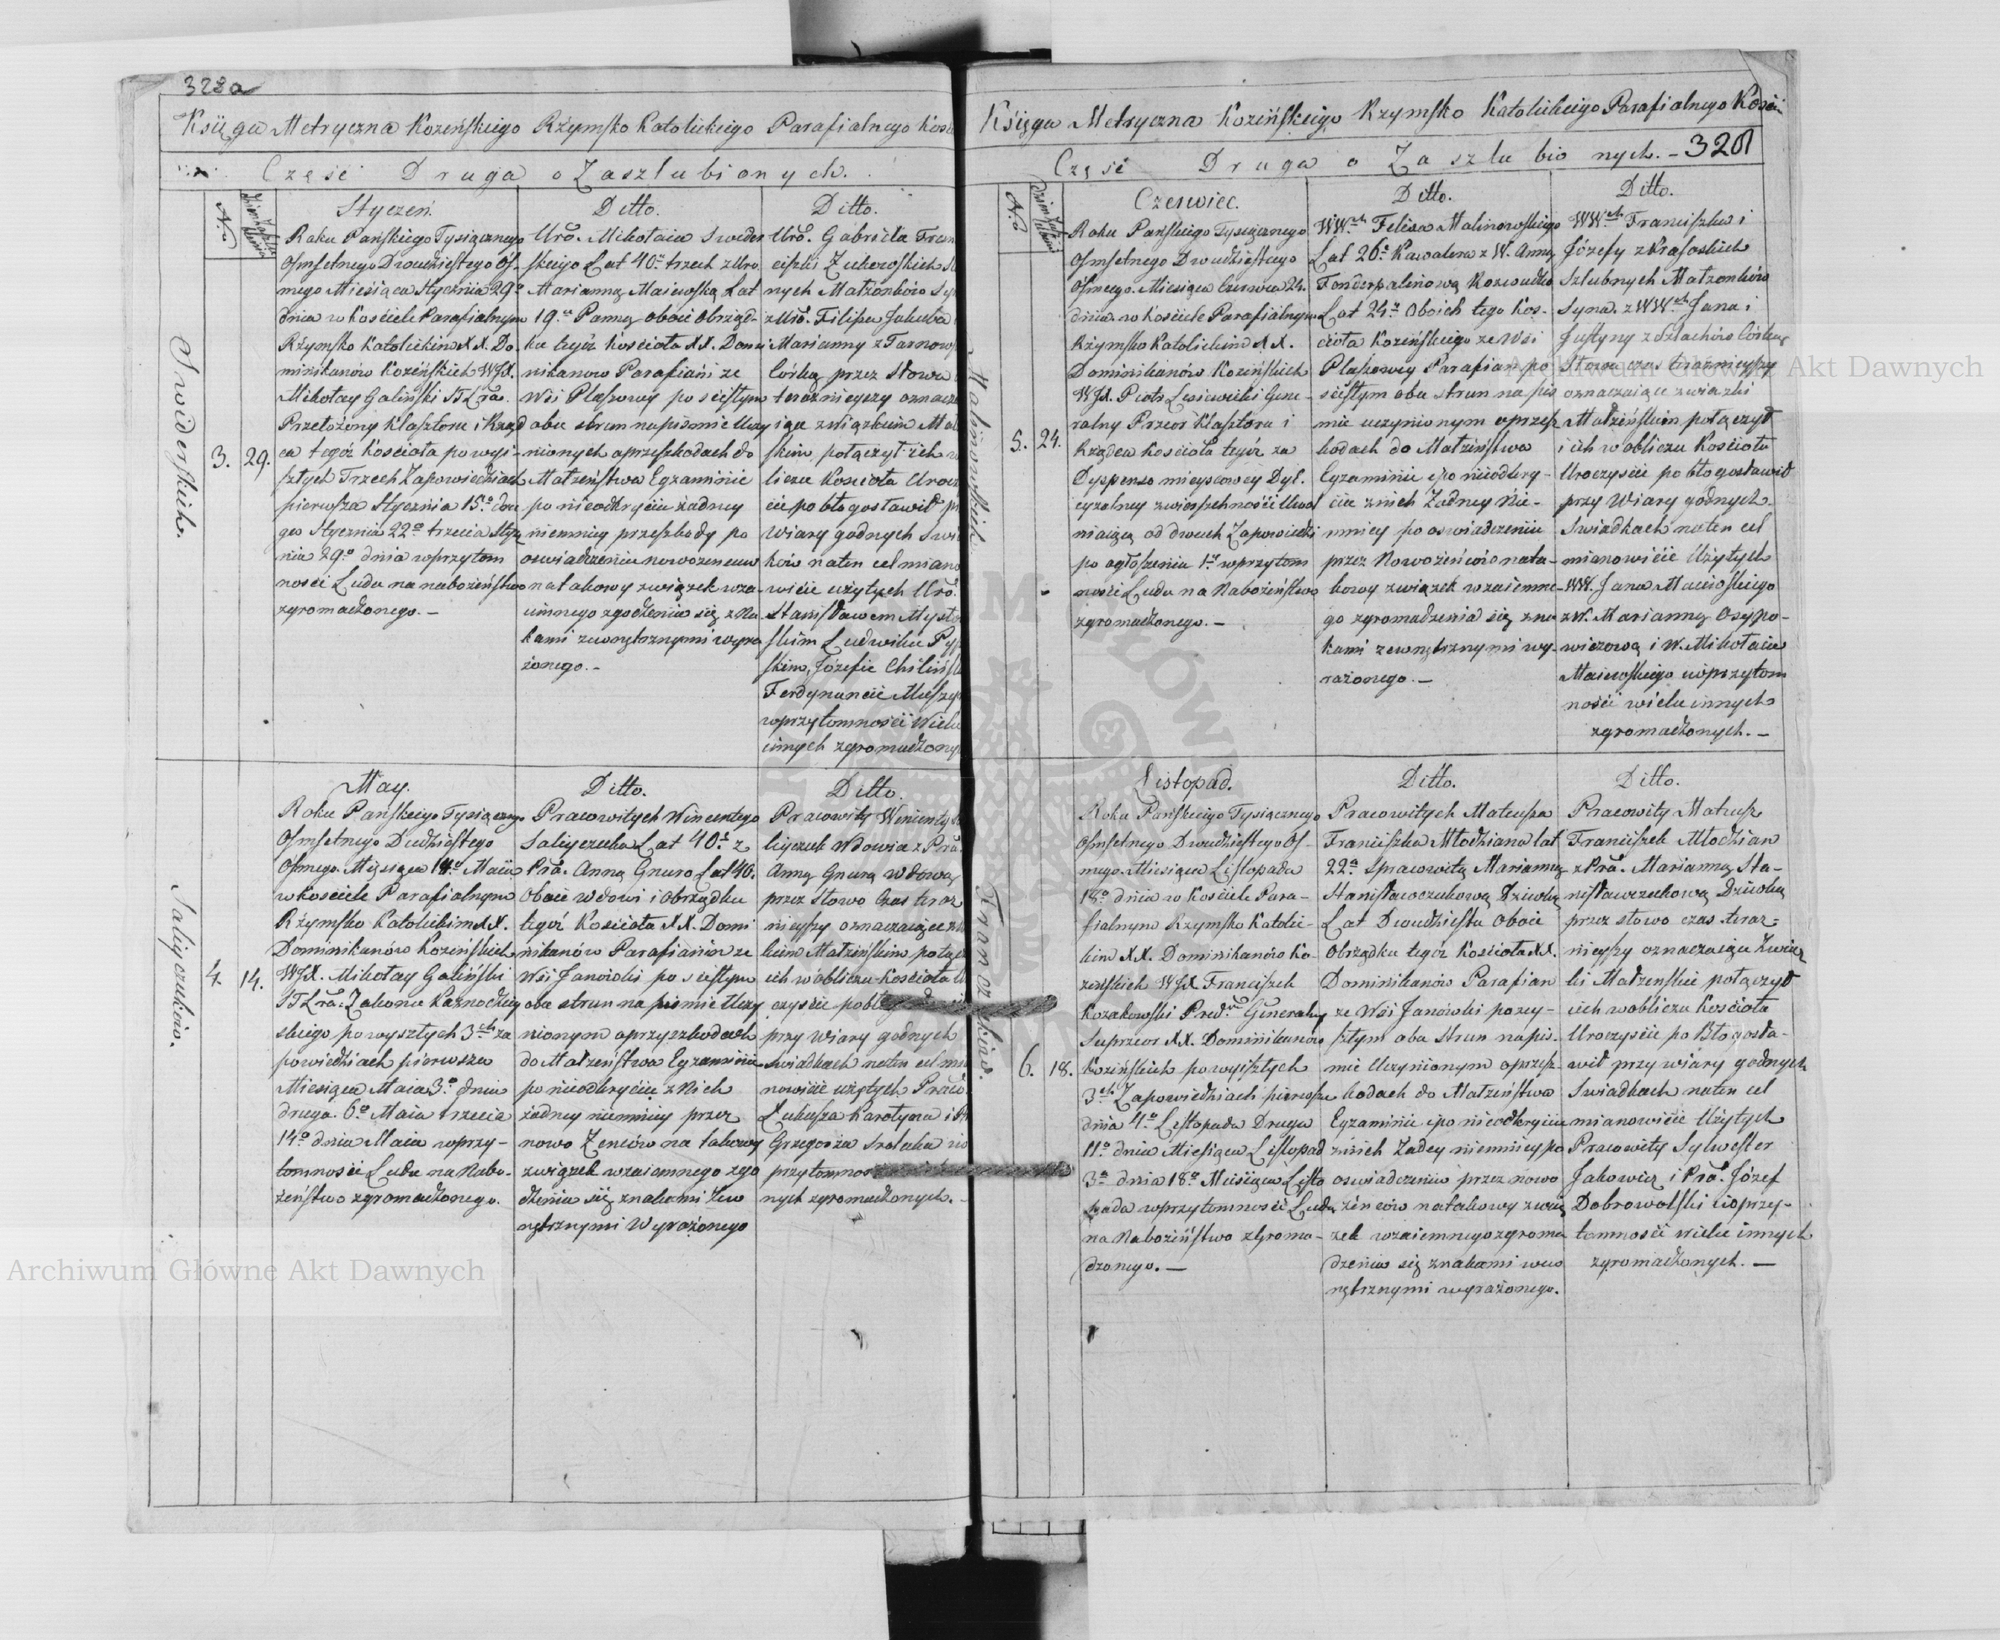 322a
Księga Metryczna Kozińskiego Rzymsko Katolickiego Parafialnego
Część Druga o Zaszlubionych.
N.
Styczeń.
Roku Pańskiego Tysiącznego
Osmsetnego Dwudziestego Os-
mego Miesiąca Stycznia 29o
dnia w Kościele Parafialnym
Rzymsko Katolickim XX. Do-
minikanów Kozińskich WJX.
Mikołay Galiński
Przełożony Klasztoru i Rząd
ca tegoż Kościoła po wyi-
sztych Trzech Zapowiedziach
pierwsza Stycznia 15o dru
ga Stycznia 22o trzecia Stycz
nia 29o dnia w przytom
ności Ludu na nabożeństwo
zgromadzonego. —
Swiderskich.
3.
29.
Ditto.
Uro. Mikołaia Swider
skiego Lat 40. trzech z Uro.
Marianną Maiewską Lat
19. Panną oboie Obrząd-
ku tegóż Kościoła XX. Domi
nikanow Parafiani ze
Wśi Plaszowy po scisłym
obu stron na pismie Uczy
nionych o przeszkodach do
Małżeństwa Egzaminie
po nieodkryciu żadney
niemniey przeszkody po
oswiadczeniu nowożencow
na takowy związek wza-
iemnego zgodzenia się zna
kami zewnętrznymi wyra
żonego. —
Ditto.
Uro. Gabriela Fran
ciszki Zuberoskich
nych Małżonków Sy
z Uro. Filipa Jakuba
Marianny z Tarnow
Córką przez słowa
teraznieyszy oznacza
iące związkiem Mał
skim połączył ich w
liczu Kościoła Urocz
cie pobłogosławił pr
Wiary godnych Swi
ków na ten cel miano
wicie użytych Uro.
Stanisławem
skim Ludwiku
skim, Józefie
Ferdynancie
w przytomności Wielu
innych zgromadzony
May.
Roku Pańskiego Tysiącznego
Osmsetnego Dwudziestego
Osmego Miesiąca 14o Maia
w Kościele Parafialnym
Rzymsko Katolickim XX.
Dominikanów Kozińskich
WJX. Mikołay Galiński
Zakonu Kaznodziey
skiego po wysztych 3ch za
powiedziach pierwsza
Miesiąca Maia 3o dnia
druga 6o Maia trzecia
14o dnia Maia w przy-
tomności Ludu na Nabo-
żeństwo zgromadzonego.
Saliyczuków.
4.
14.
Ditto.
Pracowitych Wincentego
Saliyczuka Lat 40. z
Pra. Anną Gnuro Lat 40.
Oboie wdowi i Obrządku
tegóż Kościoła XX. Domi
nikanów Parafianów ze
Wśi Janoiski po scisłym
obu stron na pismie Uczy
nionym o przyszkodach
do Małżeństwa Egzaminie
po nieodkryciu z Nich
żadney niemniey przez
nowo Zenców na takowy
związek wzaiemnego zgo
dzenia się znakami Zew
nętrznymi Wyrażonego
Ditto.
Pracowity Wincenty
liyczuk Wdowiec z Pra.
Anną Gnurą wdową
przez słowo Czas teraz
nieyszy oznaczaiące
kiem Małżeńskim połą
ich w obliczu Kościoła
czyscie
przy Wiary godnych
swiadkach na ten cel mia
nowicie użytych Prac.
Łukasza Karolyna i
Grzegorza
przytomnos
nych zgromadzonych. —
Księga Metryczna Kozińskiego Rzymsko Katolickiego Parafialnego
Część Druga o Zaszlubionych. —
N.
Czerwiec.
Roku Pańskiego Tysiącznego
Osmsetnego Dwudziestego
Osmego Miesiąca Czerwca 24.
dnia w Kościele Parafialnym
Rzymsko Katolickim XX.
Dominikanów Kozińskich
WJX. Piotr Gene-
ralny Przeor Klasztoru i
Rządca Kościoła tegóż za
Dyspensą mieyscowey Dye-
cyzalney zwierzchności Uwal
niaiącą od dwuch Zapowiedzi
po ogłoszeniu 1ey w przytom
ności Ludu na Nabożeństwo
zgromadzonego. —
Malinowskich
5.
24.
Ditto.
WWch Felixa Malinowskiego
Lat 26. Kawalera z W. Anną
Fonderpalinową Rozwodką
Lat 24. Oboich tego Koś-
cioła Kozińskiego ze Wśi
Plaszowey Parafian po
scisłym obu stron na pis
mie uczynionym o przesz
kodach do Małżeństwa
Egzaminie i po nieodkry-
ciu z nich Żadney Nie-
mniey po oswiadczeniu
przez Nowożeńców na ta-
kowy związek wzaiemne-
go zgromadzenia się zna
kami zewnętrznymi wy-
rażonego. —
Ditto.
WWch Franciszka i
Józefy z
Szlubnych Małżonków
Syna. z WWch Jana i
Justyny z Szlachów Córką
Słowa czas teraznieyszy
oznaczaiące związki
Małżeńskim połączył
i ich w obliczu Kościoła
Uroczyscie pobłogosławił
przy Wiary godnych
Swiadkach na ten cel
mianowicie Użytych
WW. Jana
z W. Marianną Osypo-
wiczową i W. Mikołaia
Maiewskiego w przytom
ności wielu innych
zgromadzonych. —
Listopad.
Roku Pańskiego Tysiącznego
Osmsetnego Dwudziestego Os-
mego Miesiąca Listopada
18o dnia w Kościele Para-
fialnym Rzymsko Katolic-
kim XX. Dominikanów Ko-
zińskich WJX Franciszek
Kozakowski Generalny
Suprzeor XX. Dominikanów
Kozińskich po wyisztych
3ch Zapowiedziach pierwsza
dnia 4o Listopada Druga
11o dnia Miesiąca Listopad
3a dnia 18o Miesiąca Listo
pada w przytomności Ludu
na Nabożeństwo zgroma-
dzonego. —
6.
18.
Ditto.
Pracowitych Mateusza
Franciszka Młodziana lat
22. z pracowitą Marianną
Stanisławczukową Dziewką
Lat Dwudziestu oboie
Obrządku tegóż Kościoła XX.
Dominikanów Parafian
ze Wśi Janoiski po scy-
słym obu stron na pis-
mie Uczynionym o przesz-
kodach do Małżeństwa
Egzaminie i po nieodkryciu
z nich Żadey niemniey po
oswiadczeniu przez nowo
żenców na takowy zwią
zek wzaiemnego zgroma
dzenia się znakami zew
nętrznymi wyrażonego.
Ditto.
Pracowity Mateusz
Franciszek Młodzian
z Pra. Marianną Sta-
nisławczukową Dziewką
przez słowo czas teraz-
nieyszy oznaczaiące Związ
ki Małżeńskie połączył
i ich w obliczu Kościoła
Uroczyscie po Błogosła-
wił przy wiary godnych
Swiadkach na ten cel
mianowicie Użytych
Pracowity Sylwester
Jakowicz i Pra. Józef
Dobrowolski w przy-
tomności wielu innych
zgromadzonych. —
Archiwum Główne Akt Dawnych
Archiwum Główne Akt Dawnych